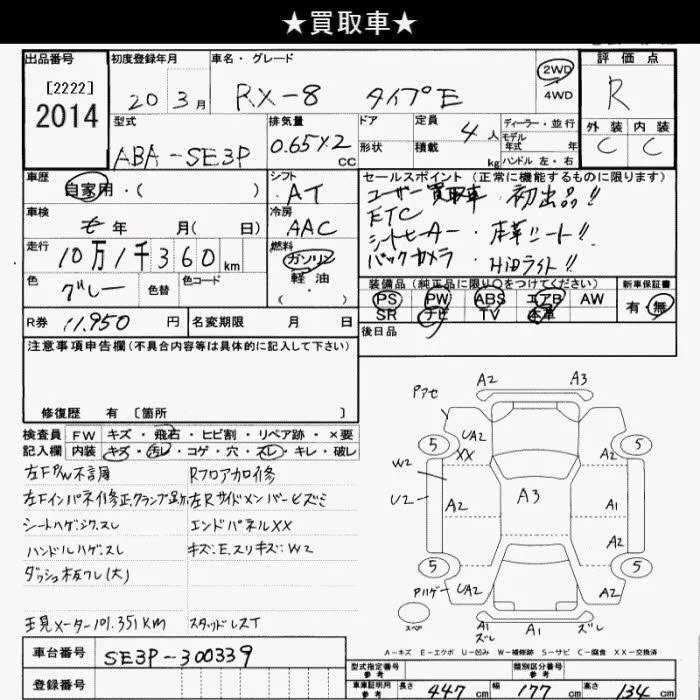 ★買取車★
出品番号
[2222]
2014
初度登録年月
20 3月
車名・グレード
RX-8 タイプE
2WD
4WD
評価点
R
型式
ABA-SE3P
排気量
0.65×2
CC
ドア
形状
定員
4人
積載
kg
ディーラー・並行
モデル
年式 年
ハンドル 左・右
外装 内装
C C
車歴
自家用・( )
シフト
AT
セールスポイント (正常に機能するものに限ります)
ユーザー買取車・初出品!!
ETC
シートヒーター・本革シート!!
バックカメラ・HiDライト!!
車検
年 月( 日)
冷房
AAC
走行
10万1千360km
燃料
ガソリン
軽油
色
グレー
色替
色コード
装備品(純正品に限り○をつけてください)
新車保証書
PS PW ABS エアB AW
SR ナビ TV 本革
有・無
R券 11,950 円
名変期限 月 日
後日品
注意事項申告欄(不具合内容等は具体的に記入して下さい)
修復歴 有 [箇所 ]
検査員 FW キズ・飛石・ヒビ割・リペア跡・×要
記入欄 内装 キズ・汚レ・コゲ・穴・スレ・キレ・破レ
左F P/W不言周
Rフロアカロ修
左Fインパネイ修正クランプ跡
左Rサイドメンバーヒズミ
シートハゲジワスレ
エンドパネルXX
ハンドルハゲスレ
キズ:E.スリキズ:W2
ダッシュ板ワレ(大)
王見メーター101.351KM
スタッドレスT
A2 A3
Pアセ
5 UA2 XX A2 5
W2
U2
A2 A3 A1
A2
5 5
Pハゲ UA2 A2
スペア
A1 ズレ A1 ズレ
A-キズ E-エクボ U-凹み W-補修跡 S-サビ C-腐食 XX-交換済
車台番号 SE3P-300339
登録番号
型式指定番号 参考
類別区分番号 参考
車車証明用 参考 長さ 447cm 幅 177cm 高さ 134cm